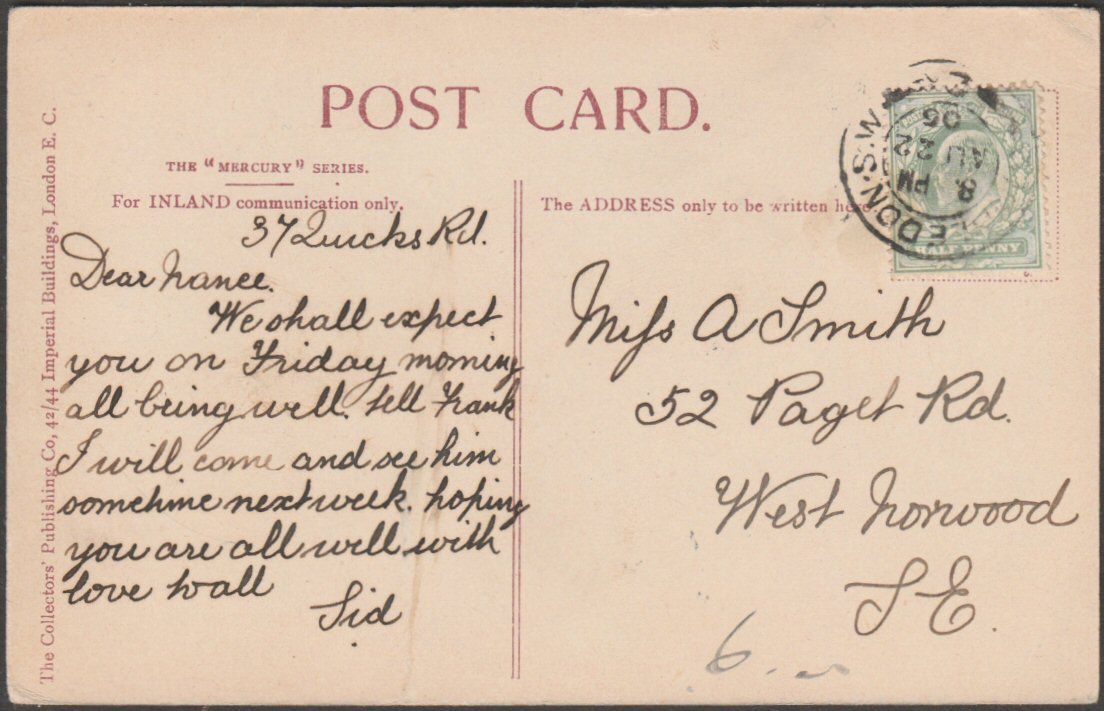 POST CARD.
THE "MERCURY" SERIES.
For INLAND communication only.
The ADDRESS only to be written here
The Collectors' Publishing Co, 42/44 Imperial Buildings, London E. C.
37 Quicks Rd.
Dear Nance.
We shall expect
you on Friday morning
all being well. tell Frank
I will come and see him
sometime next week. hoping
you are all well with
love to all
Sid
Miss A Smith
52 Paget Rd.
West Norwood
S E.
6
EDON.S.W
8 PM
AU 22
05
POST
HALF PENNY